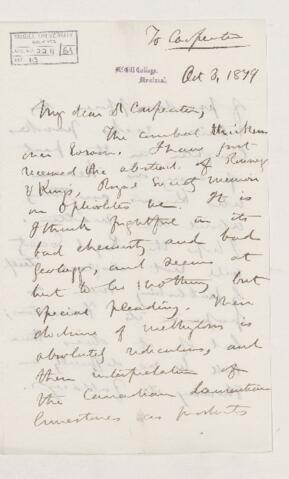 McGILL UNIVERSITY
ARCHIVES
ACC. NO. 2211/65
REF. 13
To Carpenter
McGill College,
Montreal,
Oct 3, 1879
My dear Dr Carpenter,
The combat thickens
over Eozoon. I have just
received the abstract of Rowney
& King, Royal Society memoir
on Ophiolites &c. It is
I think frightful in its
bad chemistry and bad
geology, and seems at
but to be nothing but
special pleading. Their
doctrine of methylosis is
absolutely ridiculous, and
their interpretation of
the Canadian Laurentian
limestones as products